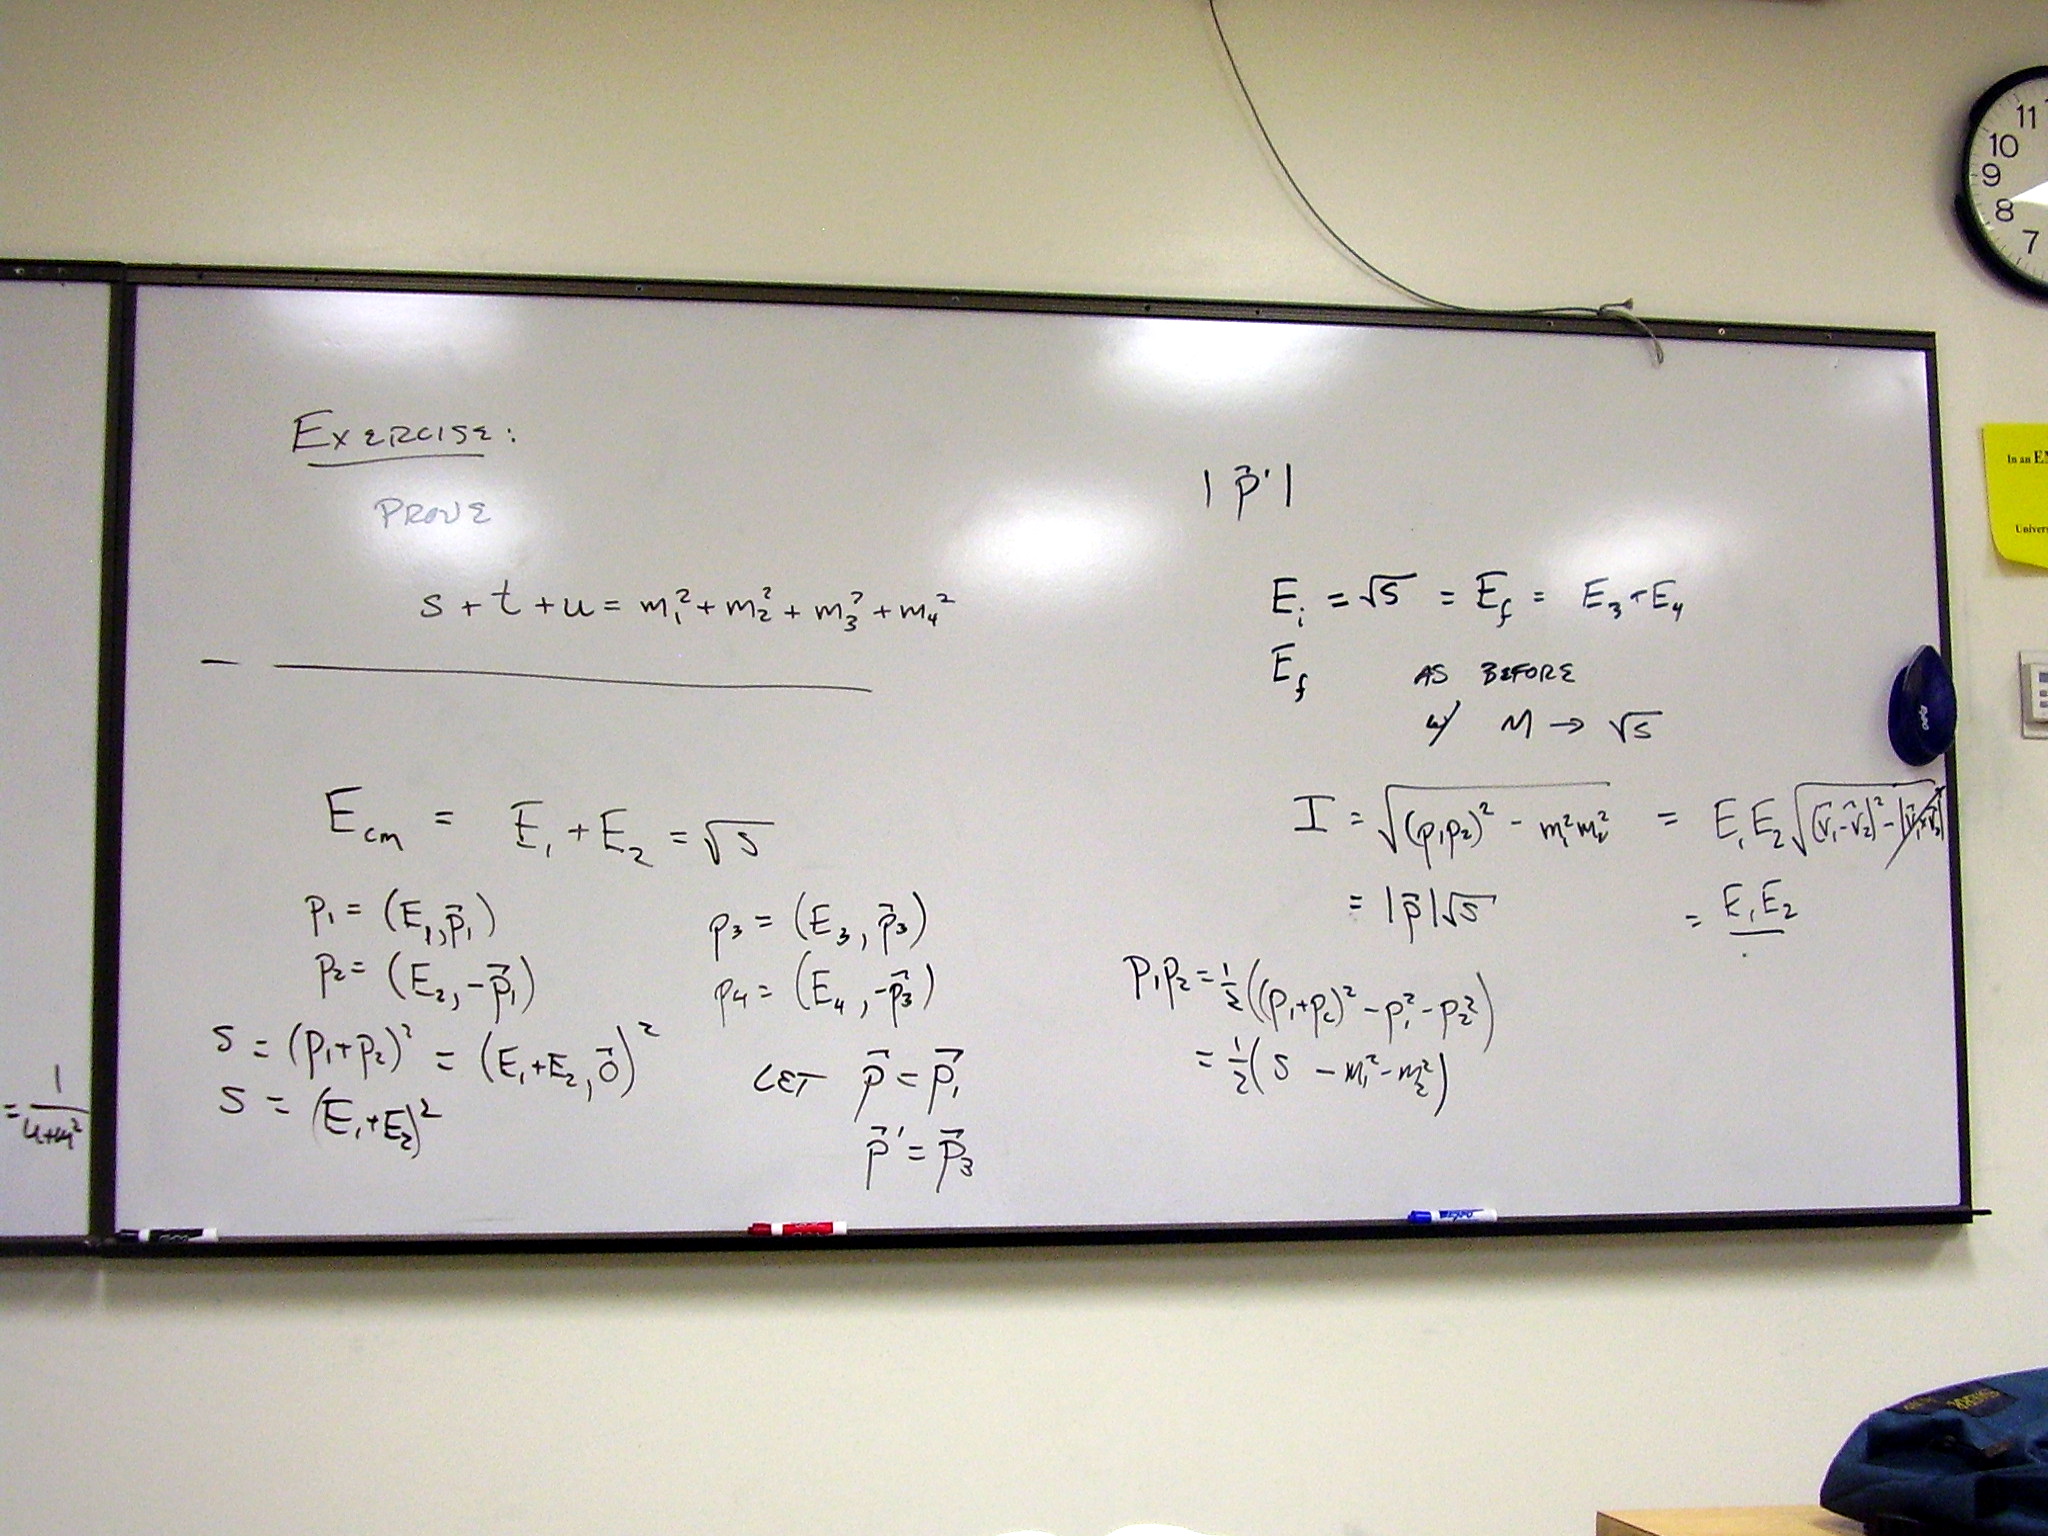 EXERCISE:
PROVE
s + t + u = m₁² + m₂² + m₃² + m₄²
E_cm = E₁ + E₂ = √s
p₁ = (E₁, p⃗₁)
p₂ = (E₂, -p⃗₁)
s = (p₁+p₂)² = (E₁+E₂, 0⃗)²
s = (E₁+E₂)²
p₃ = (E₃, p⃗₃)
p₄ = (E₄, -p⃗₃)
LET p⃗ = p⃗₁
p⃗' = p⃗₃
|p⃗'|
E_i = √s = E_f = E₃ + E₄
E_f AS BEFORE
w/ M → √s
I = √((p₁p₂)² - m₁²m₂²) = E₁E₂√((v⃗₁-v⃗₂)² - |v⃗₁×v⃗₂|
= |p⃗|√s = E₁E₂
p₁p₂ = ½((p₁+p₂)² - p₁² - p₂²)
= ½(s - m₁² - m₂²)
11
10
9
8
7
In an
Univers
EXPO